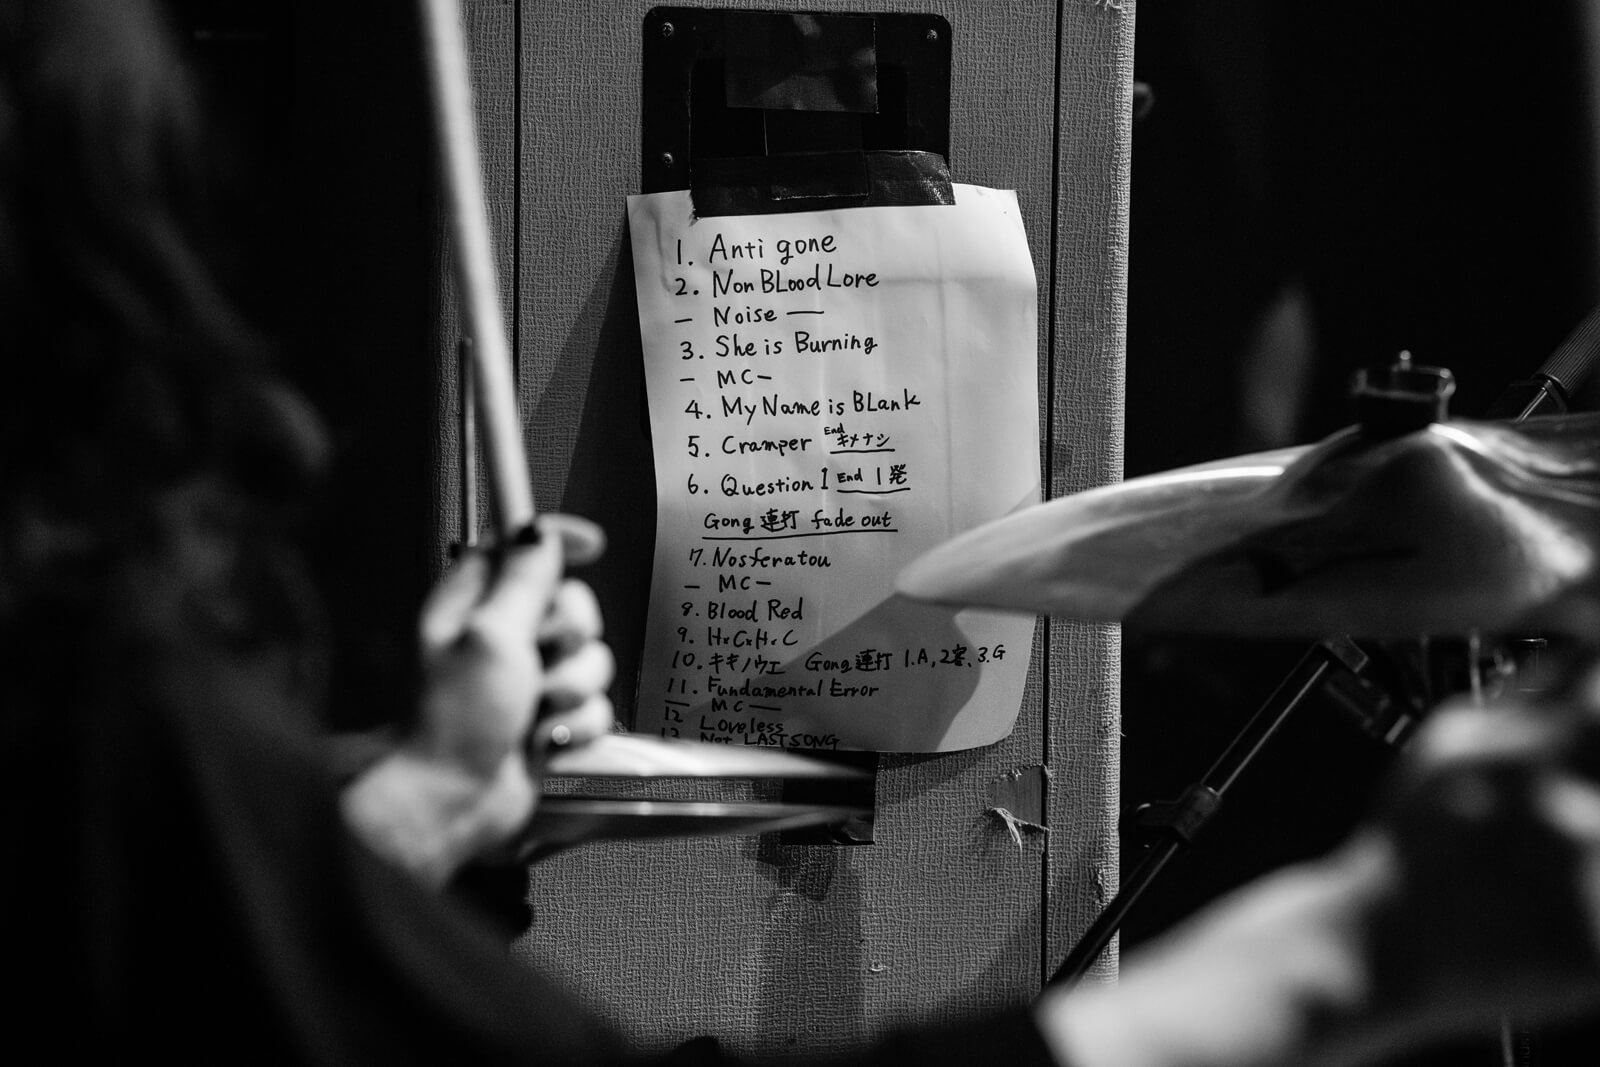 1. Anti gone
2. Non BLood Lore
— Noise —
3. She is Burning
— MC —
4. My Name is BLank
5. Cramper End キメナシ
6. Question 1 End 1発
Gong 連打 fade out
7. Nosferatou
— MC —
8. Blood Red
9. H×C×H×C
10. キキノウエ Gong 連打 1.A, 2客, 3.G
11. Fundamental Error
— MC —
12 Loveless
13 Not LAST SONG